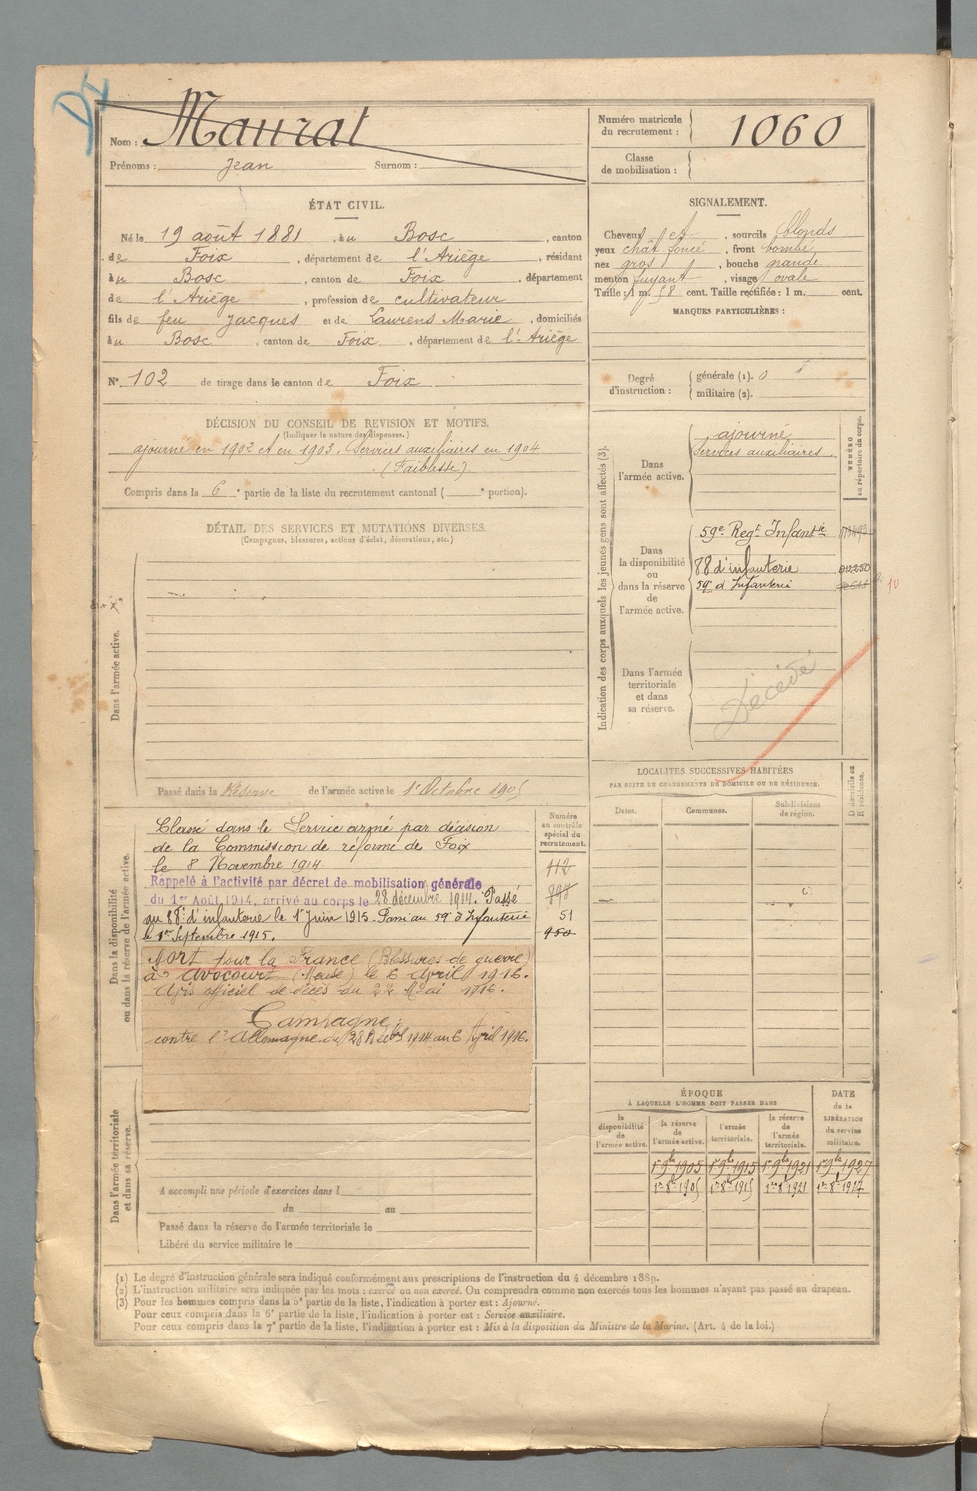 DI
Nom : Maurat
Prénoms : Jean Surnom :
Numéro matricule
du recrutement : 1060
Classe
de mobilisation :
ÉTAT CIVIL.
Né le 19 août 1881, à u Bosc, canton
de Foix, département de l'Ariège, résidant
à u Bosc, canton de Foix, département
de l'Ariège, profession de cultivateur
fils de feu Jacques et de Laurens Marie, domiciliés
à u Bosc, canton de Foix, département de l'Ariège
N° 102 de tirage dans le canton de Foix
SIGNALEMENT.
Cheveux et, sourcils blonds
yeux chât foncé, front bombé
nez gros, bouche grande
menton fuyant, visage ovale
Taille : 1 m. 58 cent. Taille rectifiée : 1 m. cent.
MARQUES PARTICULIÈRES :
Degré
d'instruction :
générale (1). 0
militaire (2).
DÉCISION DU CONSEIL DE REVISION ET MOTIFS.
(Indiquer la nature des dispenses.)
ajourné en 1902 et en 1903. Services auxiliaires en 1904
(Faiblesse)
Compris dans la 6e partie de la liste du recrutement cantonal ( e portion).
DÉTAIL DES SERVICES ET MUTATIONS DIVERSES.
(Campagnes, blessures, actions d'éclat, décorations, etc.)
Dans l'armée active.
Passé dans la Réserve de l'armée active le 1er Octobre 1905
Indication des corps auxquels les jeunes gens sont affectés (3).
NUMÉRO
au répertoire du corps.
Dans
l'armée active.
ajourné
Services auxiliaires
Dans
la disponibilité
ou
dans la réserve
de
l'armée active.
59e Regt Infantie
88 d'infanterie 012250
59e d'Infanterie
10
Dans l'armée
territoriale
et dans
sa réserve.
Décédé
LOCALITÉS SUCCESSIVES HABITÉES
PAR SUITE DE CHANGEMENTS DE DOMICILE OU DE RÉSIDENCE.
Dates. Communes. Subdivisions
de région.
D domicile ou
R résidence.
Dans la disponibilité
ou dans la réserve de l'armée active.
Numéro
au contrôle
spécial du
recrutement.
112
51
950
Classé dans le Service armé par décision
de la Commission de réforme de Foix
le 8 Novembre 1914
Rappelé à l'activité par décret de mobilisation générale
du 1er Août 1914, arrivé au corps le 28 décembre 1914. Passé
au 88e d'infanterie le 1er juin 1915. Passé au 59e d'Infanterie
le 1er Septembre 1915.
Mort pour la France (Blessures de guerre)
à Avocourt (Meuse) le 6 avril 1916.
Avis officiel de décès du 22 Mai 1916.
Campagne :
contre l'Allemagne du 28 Décbre 1914 au 6 Avril 1916.
ÉPOQUE
À LAQUELLE L'HOMME DOIT PASSER DANS
la
disponibilité
de
l'armée active.
la réserve
de
l'armée active.
l'armée
territoriale.
la réserve
de
l'armée
territoriale.
DATE
de la
LIBÉRATION
du service
militaire.
1er 9bre 1905 1er 9bre 1915 1er 9bre 1921 1er 9bre 1927
1er 8bre 1905 1er 8bre 1915 1er 8bre 1921 1er 8bre 1927
Dans l'armée territoriale
et dans sa réserve.
A accompli une période d'exercices dans l
du au
Passé dans la réserve de l'armée territoriale le
Libéré du service militaire le
(1) Le degré d'instruction générale sera indiqué conformément aux prescriptions de l'instruction du 4 décembre 1889.
(2) L'instruction militaire sera indiquée par les mots : exercé ou non exercé. On comprendra comme non exercés tous les hommes n'ayant pas passé au drapeau.
(3) Pour les hommes compris dans la 5e partie de la liste, l'indication à porter est : Ajourné.
Pour ceux compris dans la 6e partie de la liste, l'indication à porter est : Service auxiliaire.
Pour ceux compris dans la 7e partie de la liste, l'indication à porter est : Mis à la disposition du Ministre de la Marine. (Art. 4 de la loi.)